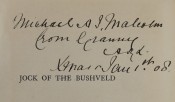 Michael A. J. Malcolm
from Granny
Xmas Jan 1st 08.
JOCK OF THE BUSHVELD